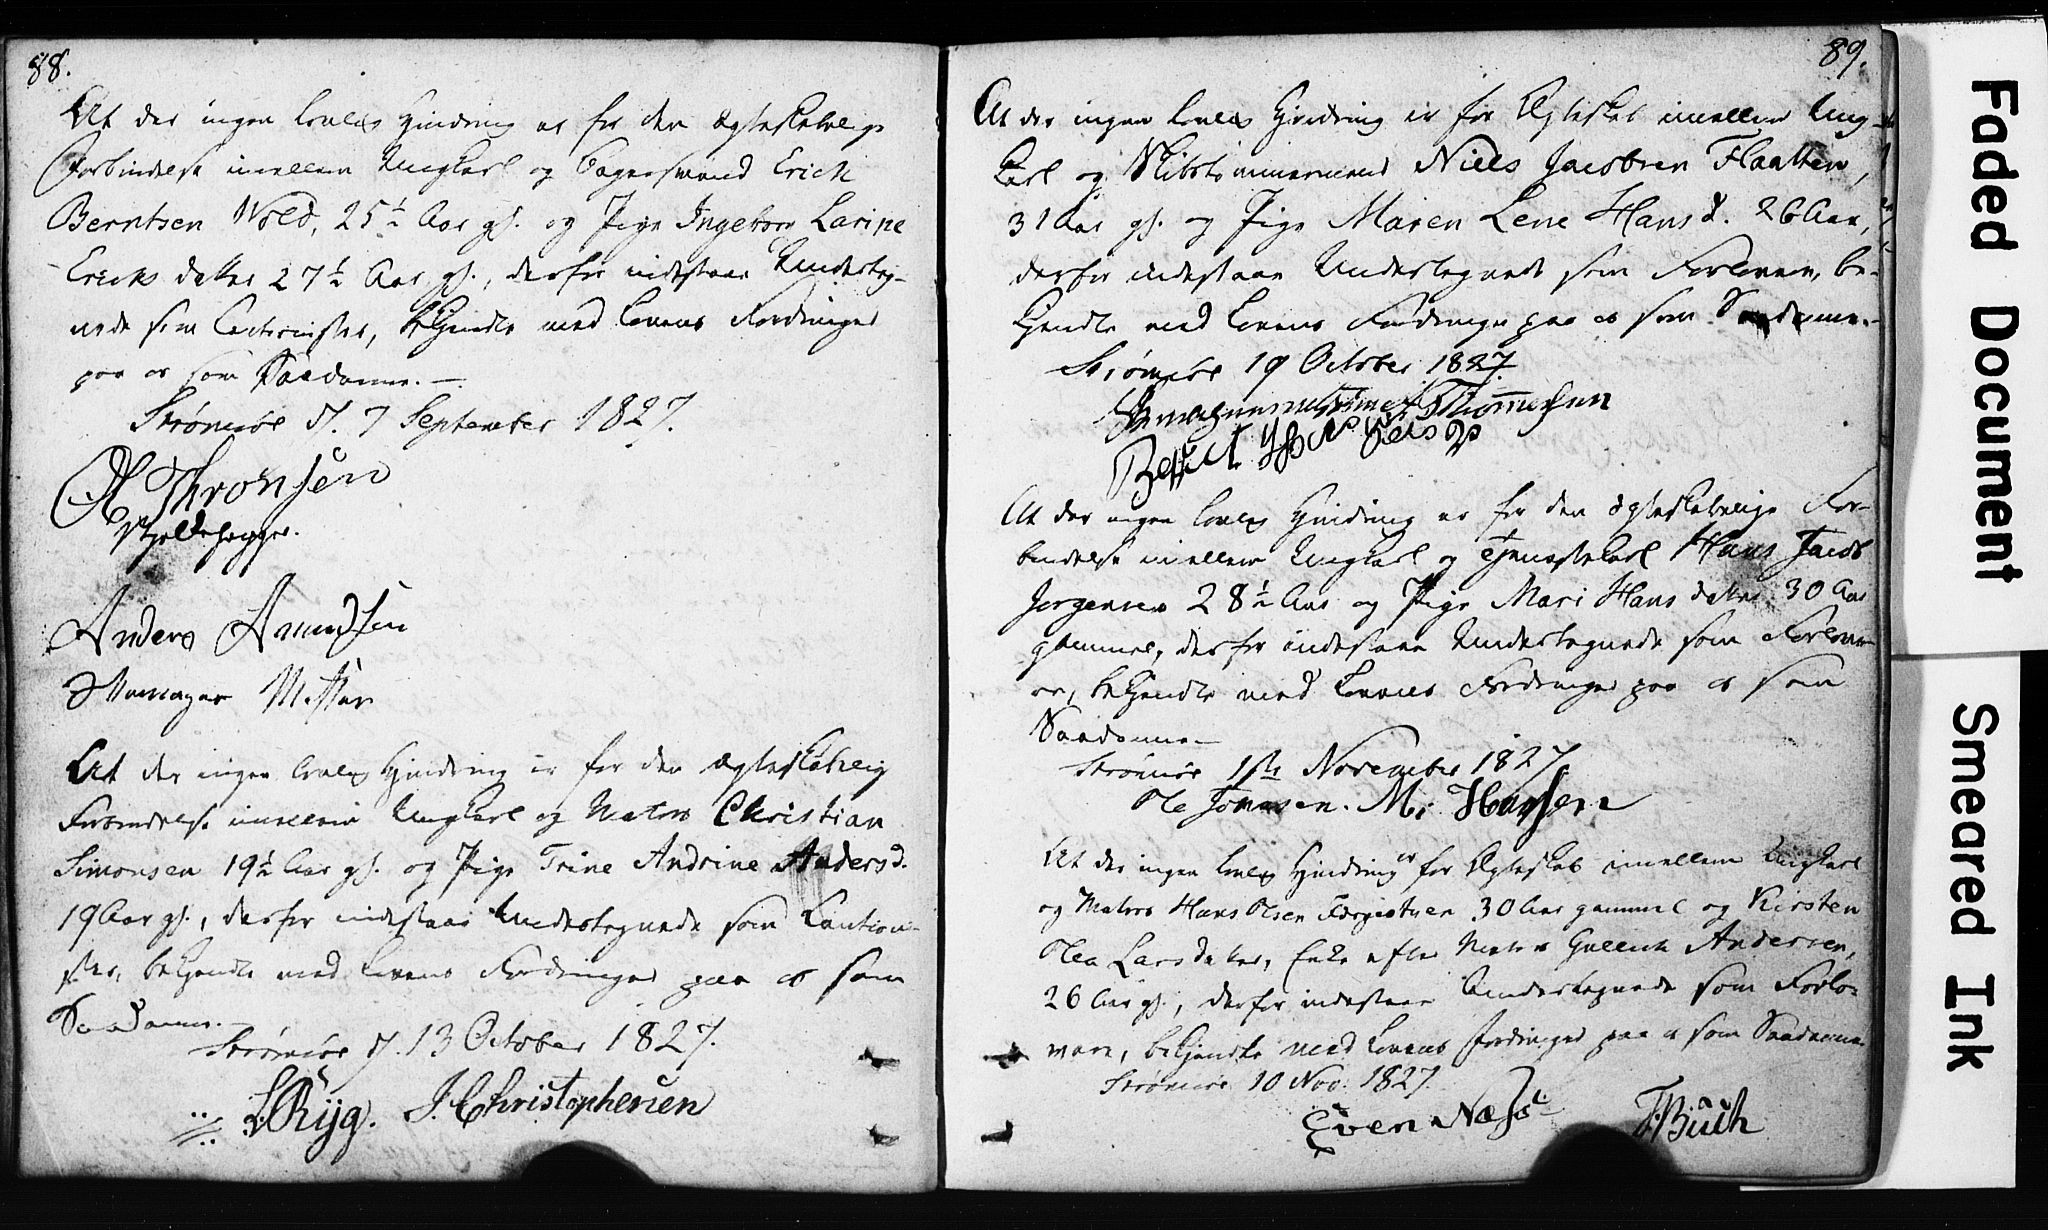 88.
At der ingen lovlig Hindring er for den ægteskabelige
Forbindelse imellem Ungkarl og Bagersvend Erich
Berntsen Wold, 25½ Aar gl. og Pige Ingeborg Larine
Ericksdatter 27½ Aar gl., derfor indestaae Underteg-
nede som Cautionister, bekjendte med Lovens Fordringer
paa os som Saadanne.—
Strømsøe d. 7 September 1827.
Thronsen
Anders Amundsen
Mester
At der ingen lovlig Hindring er for den ægteskabelig
Forbindelse imellem Ungkarl og Matros Christian
Simonsen 19½ Aar gl. og Pige Trine Andrine Andersd.
19 Aar gl., derfor indestaae Undertegnede som Caution-
ister, bekjendte med Lovens Fordringer paa os som
Saadanne.—
Strømsøe d. 13 October 1827.
Ryg. J. Christophersen
89.
At der ingen lovlig Hindring er for Ægteskab imellem Ung-
karl og Skibstømmermand Niels Jacobsen Flaatten,
31 Aar gl. og Pige Maren Lene Hansd. 26 Aar,
derfor indestaae Undertegnede som Forlovere, be-
kjendte med Lovens Fordringer paa os som Saadanne.-
Strømsøe 19 October 1827.
Thommesen
At der ingen lovlig Hindring er for den ægteskabelige For-
bindelse imellem Ungkarl og Tjenestekarl Hans Jacob
Jørgensen 28½ Aar og Pige Mari Hansdatter 30 Aar
gammel, derfor indestaae Undertegnede som Forlove-
re, bekjendte med Lovens Fordringer paa os som
Saadanne—
Strømsøe 1ste November 1827
Ole Jonassen. M: Hansen
At der ingen lovlig Hindring er for Ægteskab imellem Ungkarl
og Matros Hans Olsen Færgestuen 30 Aar gammel og Kirsten
Olea Larsdatter, Enke efter Matros Gullich Andersen,
26 Aar gl., derfor indestaae Undertegnede som Forlo-
vere, bekjendte med Lovens Fordringer paa os som Saadanne
Strømsøe 10 Nov. 1827.
Even Næss F. Buch
Faded Document
Smeared Ink